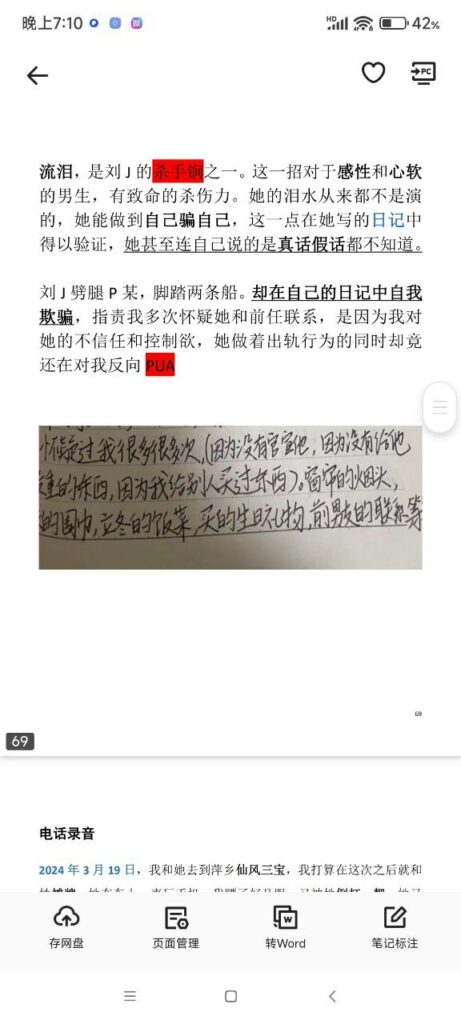 晚上7:10
HD
42%
PC
流泪，是刘 J 的杀手锏之一。这一招对于感性和心软
的男生，有致命的杀伤力。她的泪水从来都不是演
的，她能做到自己骗自己，这一点在她写的日记中
得以验证，她甚至连自己说的是真话假话都不知道。
刘 J 劈腿 P 某，脚踏两条船。却在自己的日记中自我
欺骗，指责我多次怀疑她和前任联系，是因为我对
她的不信任和控制欲，她做着出轨行为的同时却竟
还在对我反向 PUA
怀疑过我很多很多次,(因为没有官宣他,因为没有给他
重的东西,因为我给别人买过东西),窗帘的烟头,
的围巾,立冬的饭菜,买的生日礼物,前男友的联系等
69
69
电话录音
2024 年 3 月 19 日，我和她去到萍乡仙风三宝，我打算在这次之后就和
存网盘
页面管理
转Word
笔记标注